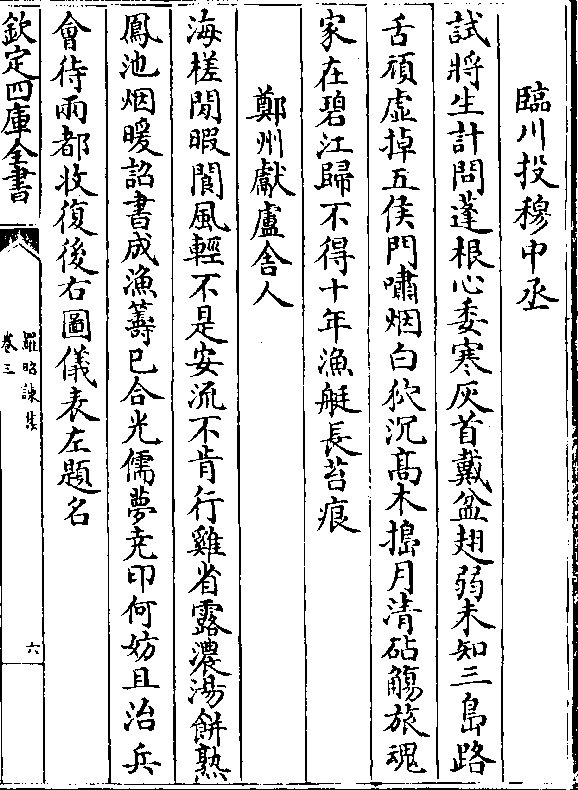 臨川投穆中丞
試將生計問蓬根心委寒灰首戴盆翅弱未知三島路
舌頑虛掉五侯門嘯烟白狖沉髙木搗月清砧觴旅魂
家在碧江歸不得十年漁艇長苔痕
鄭州獻盧舍人
海槎閒暇閬風輕不是安流不肯行雞省露濃湯餅熟
鳳池烟暖詔書成漁蓑已合光儒夢尭印何妨且治兵
會待兩都收復後右圖儀表左題名
欽定四庫全書
羅昭諫集
卷三
六